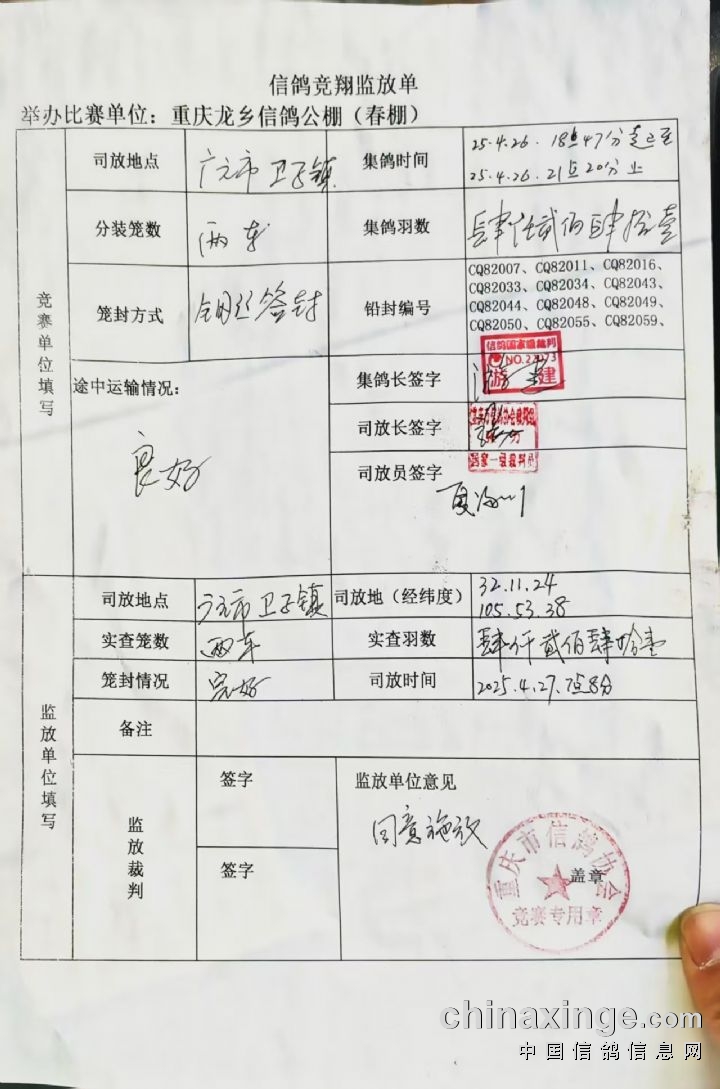 信鸽竞翔监放单
举办比赛单位：重庆龙乡信鸽公棚（春棚）
竞赛单位填写
司放地点 广元市卫子镇 集鸽时间 25.4.26.18点47分起至
25.4.26.21点20分止
分装笼数 两车 集鸽羽数 肆仟贰佰肆拾壹
笼封方式 钢丝签封 铅封编号 CQ82007、CQ82011、CQ82016、
CQ82033、CQ82034、CQ82043、
CQ82044、CQ82048、CQ82049、
CQ82050、CQ82055、CQ82059、
途中运输情况：
良好
集鸽长签字
信鸽国家级裁判
游建
司放长签字
国家一级裁判员
司放员签字
监放单位填写
司放地点 广元市卫子镇 司放地（经纬度） 32.11.24
105.53.38
实查笼数 两车 实查羽数 肆仟贰佰肆拾壹
笼封情况 完好 司放时间 2025.4.27.7点8分
备注
监放裁判
签字
签字
监放单位意见
同意施放
重庆市信鸽协会
盖章
竞赛专用章
chinaxinge.com
中国信鸽信息网